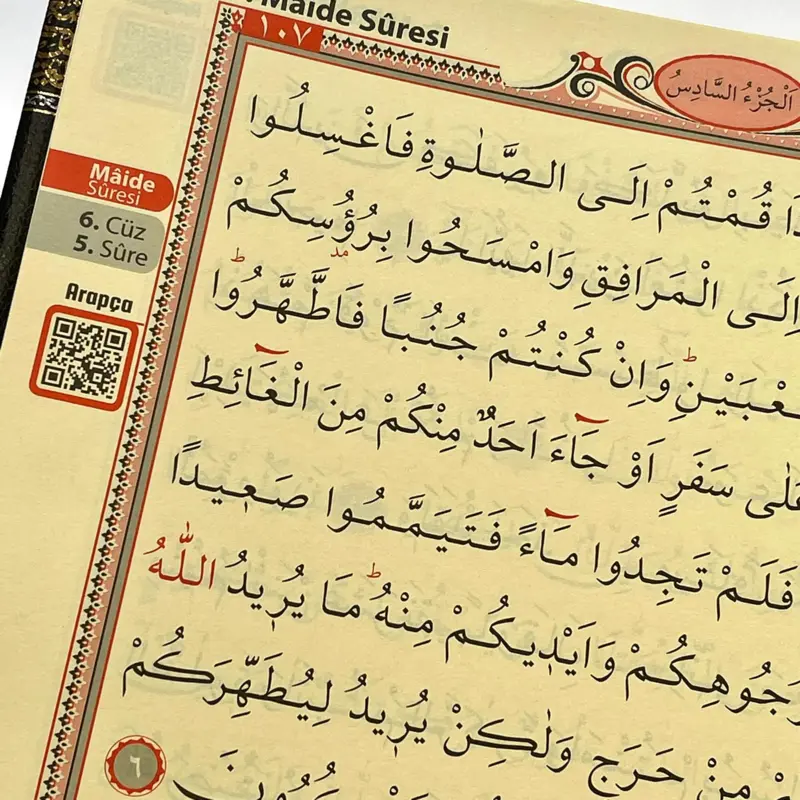 Mâide Sûresi
١٠٧
اَلْجُزْءُ السَّادِسُ
Mâide
Sûresi
6. Cüz
5. Sûre
Arapça
قُمْتُمْ اِلَى الصَّلٰوةِ فَاغْسِلُوا
اِلَى الْمَرَافِقِ وَامْسَحُوا بِرُؤُسِكُمْ
وَاِنْ كُنْتُمْ جُنُبًا فَاطَّهَّرُوا
سَفَرٍ اَوْ جَٓاءَ اَحَدٌ مِنْكُمْ مِنَ الْغَٓائِطِ
فَلَمْ تَجِدُوا مَٓاءً فَتَيَمَّمُوا صَعٖيدًا
وَاَيْدٖيكُمْ مِنْهُؕ مَا يُرٖيدُ اللّٰهُ
مِنْ حَرَجٍ وَلٰكِنْ يُرٖيدُ لِيُطَهِّرَكُمْ
٦